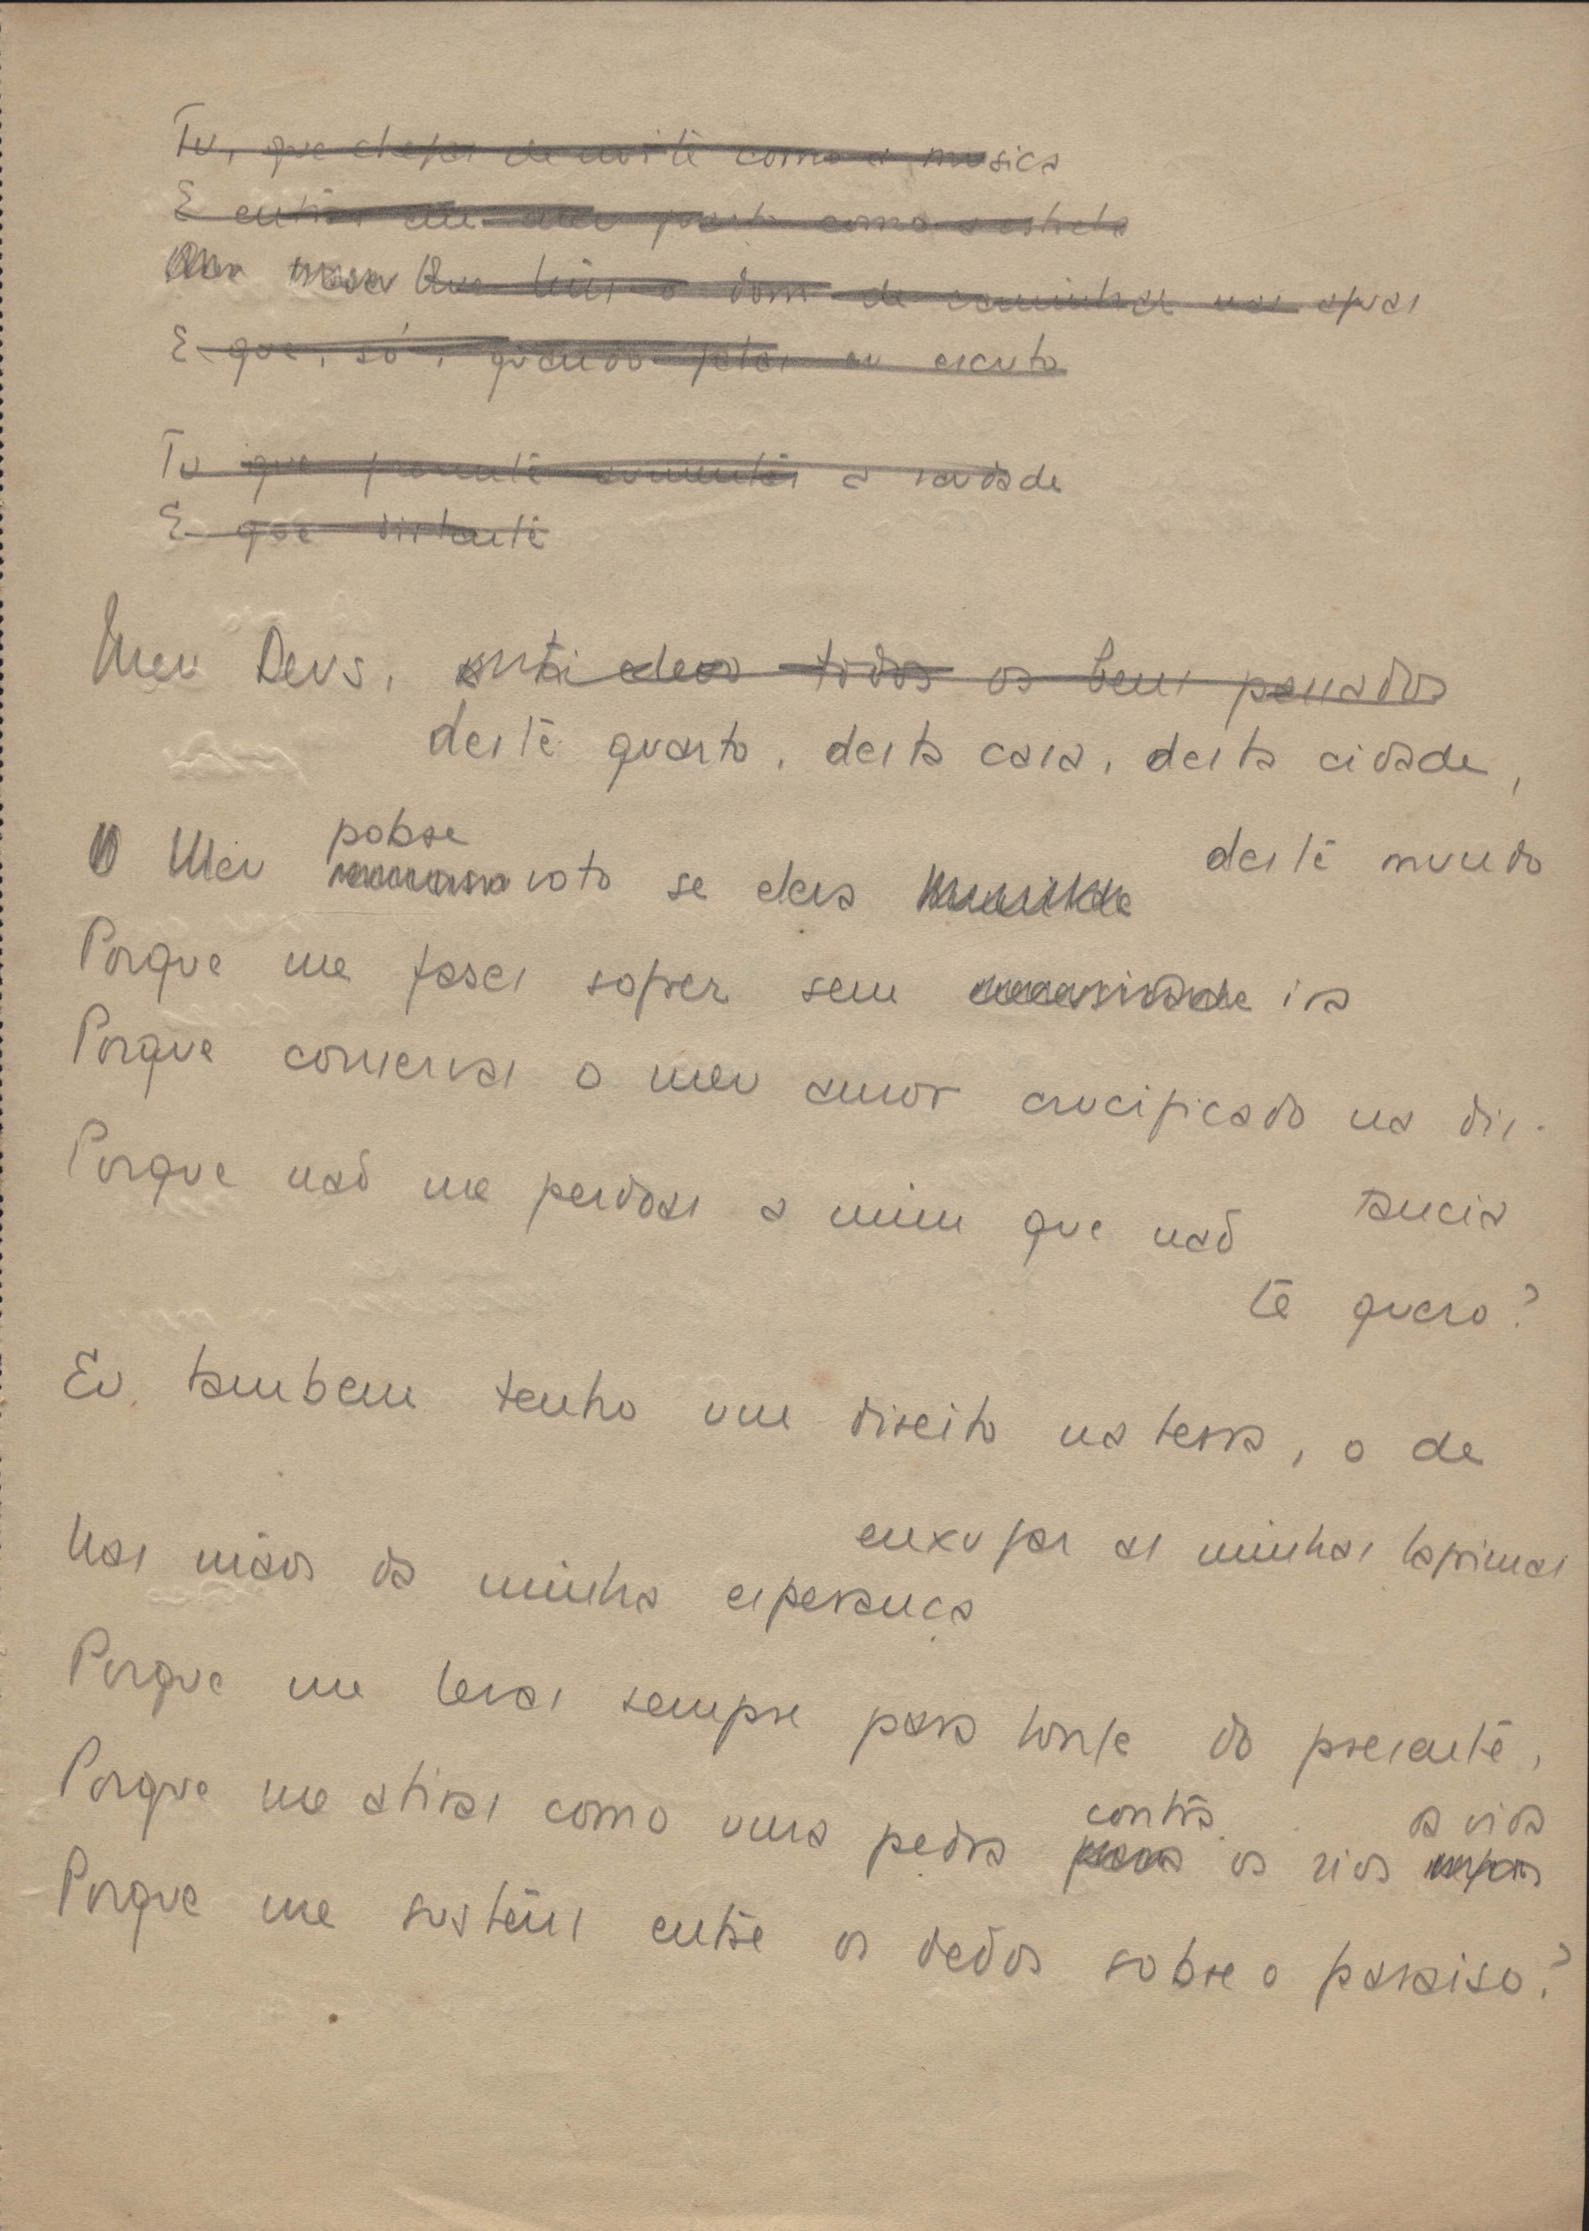 Tu, que chegas de noite como a musica
E entras em meu quarto como a estrela
Que tens o dom de caminhar nas aguas
E que, só, quando falas eu escuto
Tu que presente aumentas a saudade
E que distante
Meu Deus, todos os bens passados
deste quarto, desta casa, desta cidade,
deste mundo
pobre
O Meu voto se eleva
Porque me fazes sofrer sem ira
Porque conservas o meu amor crucificado na dis-
tancia
Porque não me perdoas a mim que não
te quero?
Eu tambem tenho um direito na terra, o de
enxugar as minhas lagrimas
Nas mãos da minha esperança
Porque me levas sempre para longe do presente,
Porque me atiras como uma pedra contra os rios da vida
Porque me sustens entre os dedos sobre o paraiso?